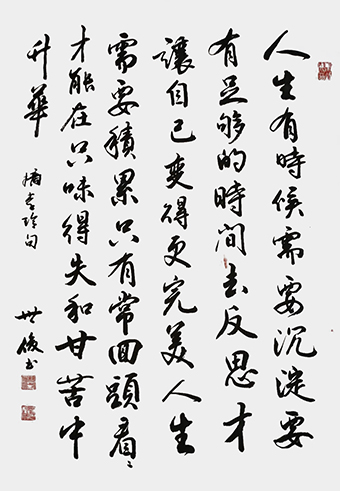 人生有時候需要沉淀要
有足够的時間去反思才
讓自己變得更完美人生
需要積累只有常回頭看〻
才能在只味得失和甘苦中
升華
摘句
世俊书